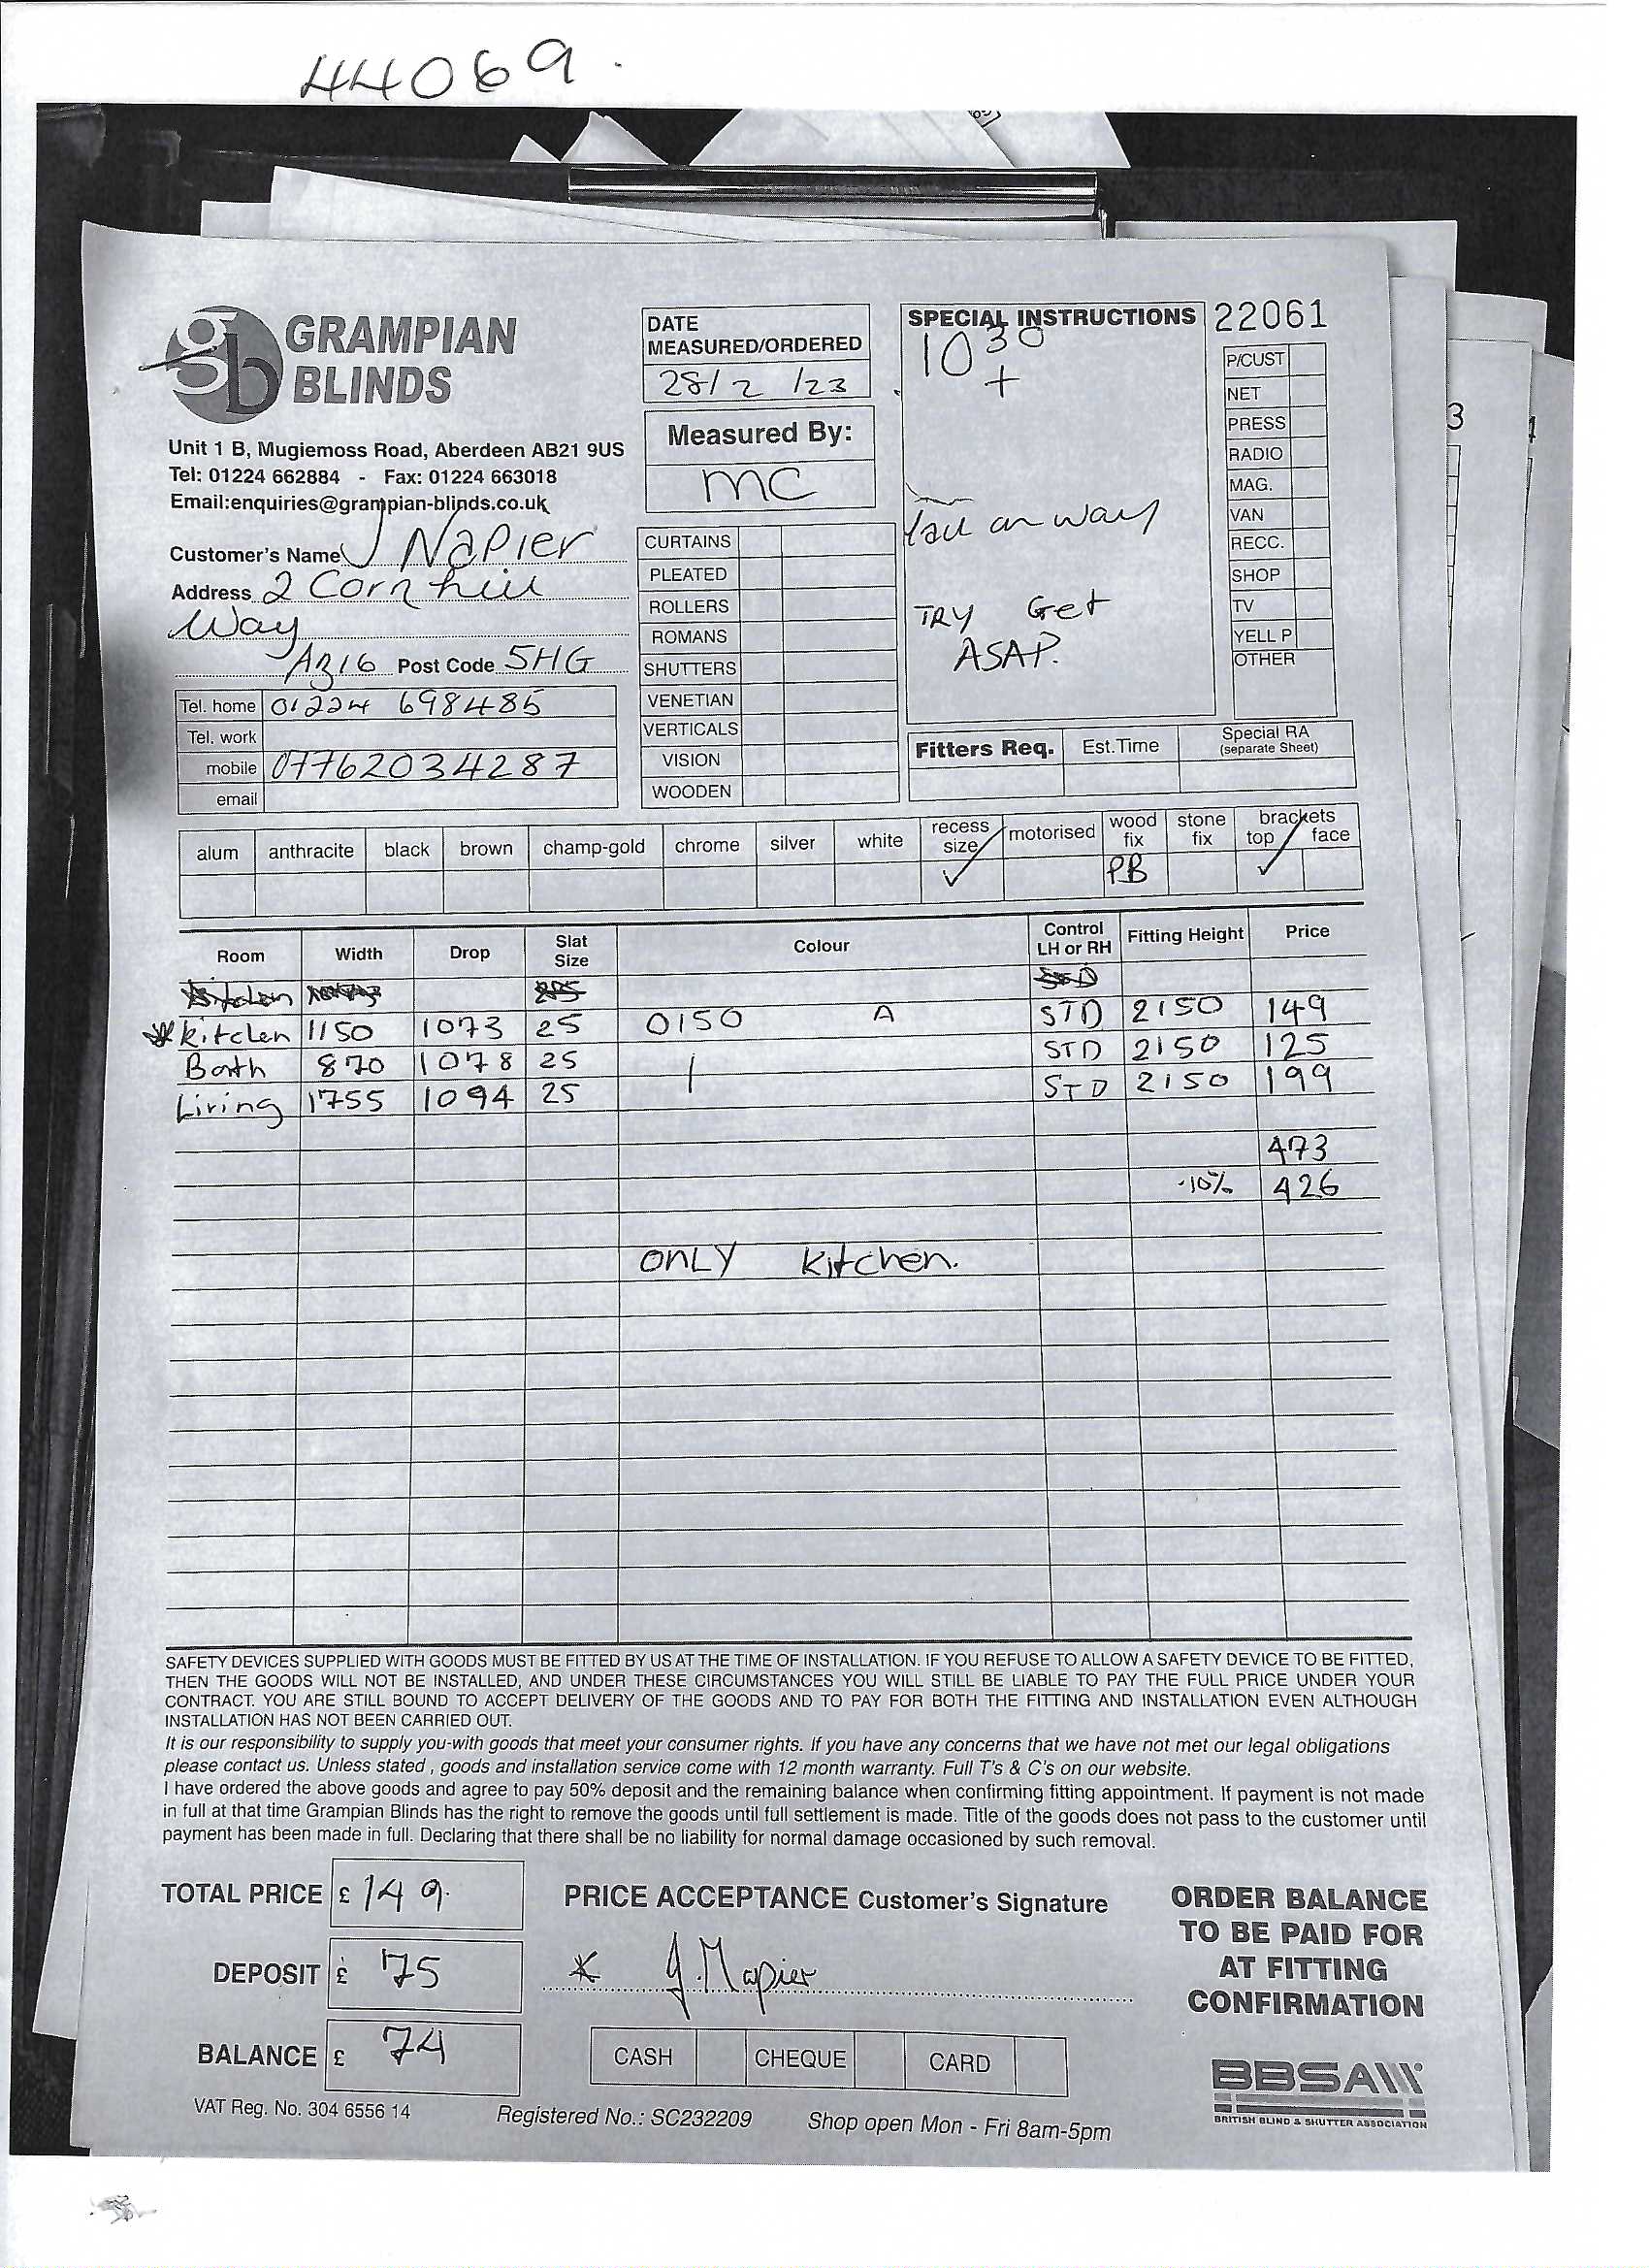 44069.
GRAMPIAN
BLINDS
Unit 1 B, Mugiemoss Road, Aberdeen AB21 9US
Tel: 01224 662884 - Fax: 01224 663018
Email:enquiries@grampian-blinds.co.uk
Customer's Name J Napier
Address 2 Cornhill
Way
AB16 Post Code 5HG
Tel. home 01224 698485
Tel. work
mobile 07762034287
email
DATE
MEASURED/ORDERED
28/2/23
Measured By:
MC
CURTAINS
PLEATED
ROLLERS
ROMANS
SHUTTERS
VENETIAN
VERTICALS
VISION
WOODEN
SPECIAL INSTRUCTIONS
1030
+
on way
TRY Get
ASAP.
22061
P/CUST
NET
PRESS
RADIO
MAG.
VAN
RECC.
SHOP
TV
YELL P
OTHER
Fitters Req. Est.Time Special RA
(separate Sheet)
alum anthracite black brown champ-gold chrome silver white recess size motorised wood fix stone fix brackets top face
✓ PB ✓
Room Width Drop Slat Size Colour Control LH or RH Fitting Height Price
* Kitchen 1150 1073 25 0150 A STD 2150 149
Bath 870 1078 25 STD 2150 125
Living 1755 1094 25 STD 2150 199
473
-10% 426
ONLY Kitchen.
SAFETY DEVICES SUPPLIED WITH GOODS MUST BE FITTED BY US AT THE TIME OF INSTALLATION. IF YOU REFUSE TO ALLOW A SAFETY DEVICE TO BE FITTED,
THEN THE GOODS WILL NOT BE INSTALLED, AND UNDER THESE CIRCUMSTANCES YOU WILL STILL BE LIABLE TO PAY THE FULL PRICE UNDER YOUR
CONTRACT. YOU ARE STILL BOUND TO ACCEPT DELIVERY OF THE GOODS AND TO PAY FOR BOTH THE FITTING AND INSTALLATION EVEN ALTHOUGH
INSTALLATION HAS NOT BEEN CARRIED OUT.
It is our responsibility to supply you-with goods that meet your consumer rights. If you have any concerns that we have not met our legal obligations
please contact us. Unless stated , goods and installation service come with 12 month warranty. Full T's & C's on our website.
I have ordered the above goods and agree to pay 50% deposit and the remaining balance when confirming fitting appointment. If payment is not made
in full at that time Grampian Blinds has the right to remove the goods until full settlement is made. Title of the goods does not pass to the customer until
payment has been made in full. Declaring that there shall be no liability for normal damage occasioned by such removal.
TOTAL PRICE £ 149.
DEPOSIT £ 75
BALANCE £ 74
PRICE ACCEPTANCE Customer's Signature
* J. Napier
CASH CHEQUE CARD
ORDER BALANCE
TO BE PAID FOR
AT FITTING
CONFIRMATION
BBSA
BRITISH BLIND & SHUTTER ASSOCIATION
VAT Reg. No. 304 6556 14
Registered No.: SC232209
Shop open Mon - Fri 8am-5pm